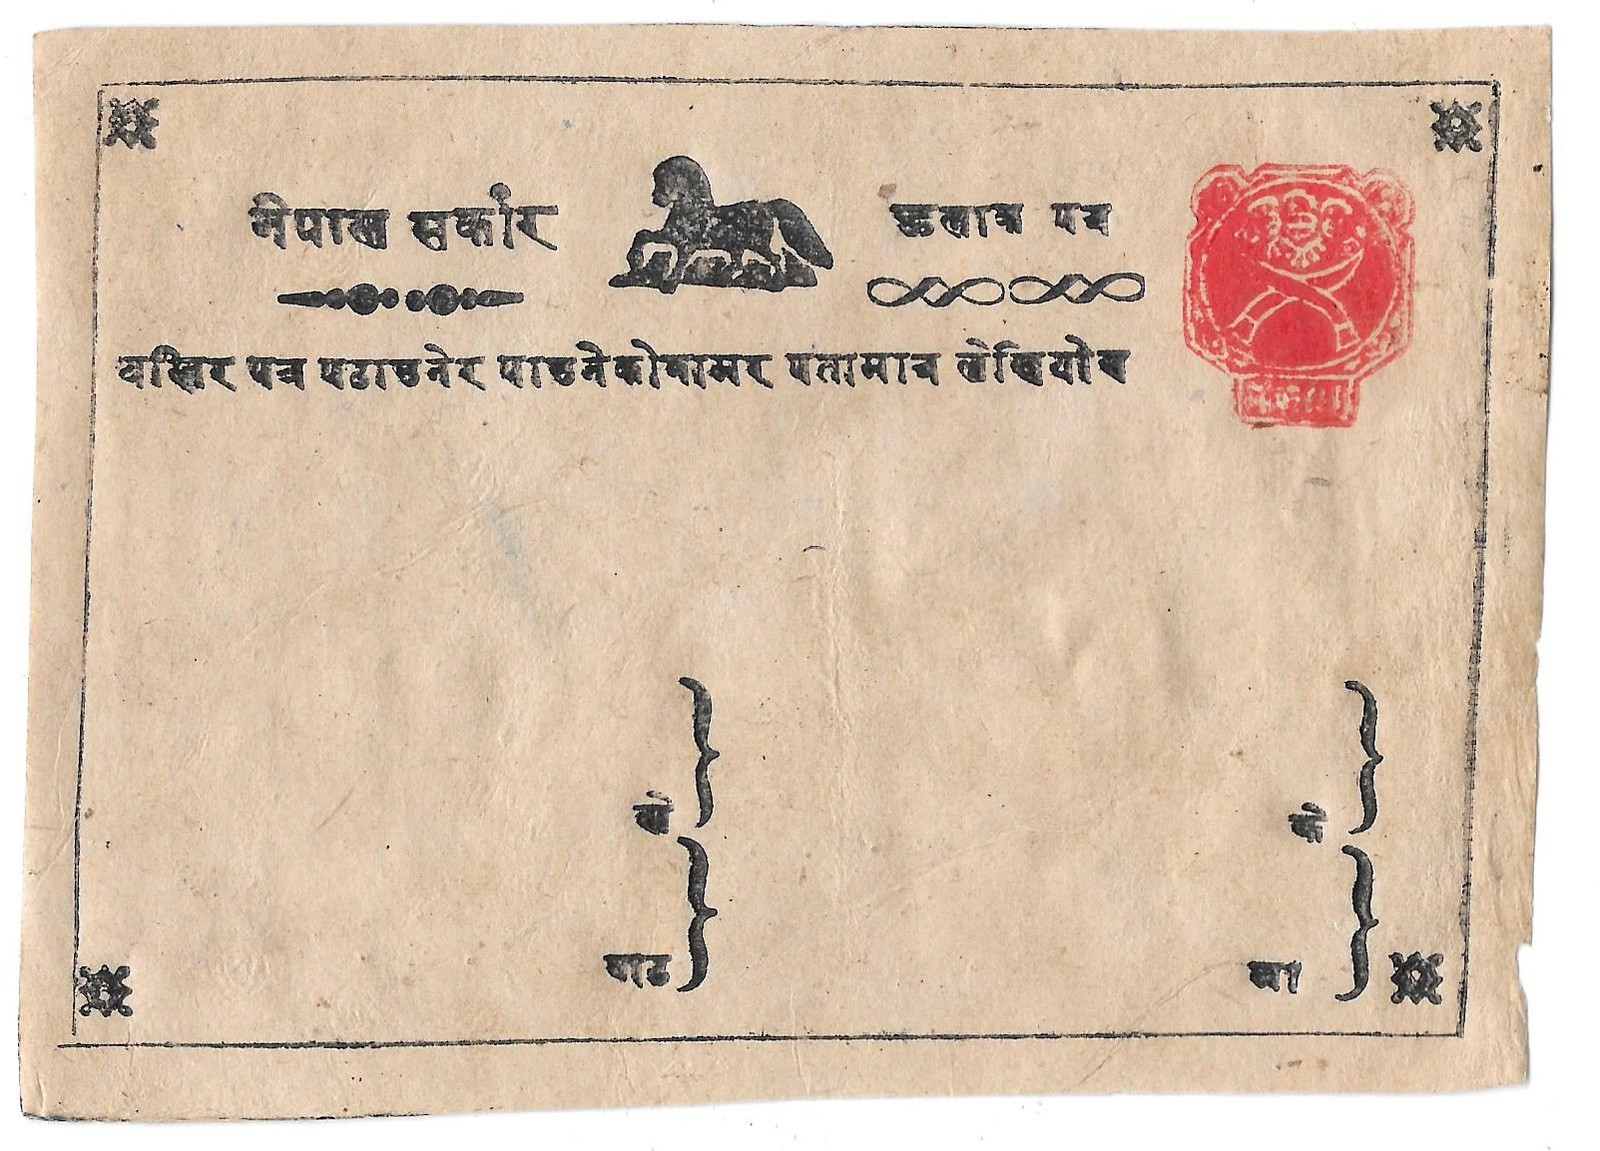 नेपाल सर्कार
षलाव पत्र
यस्तिर पत्र पठाउनेर पाउनेकोनामर पतामात्र लेखियोस
को
के
बाट
मा